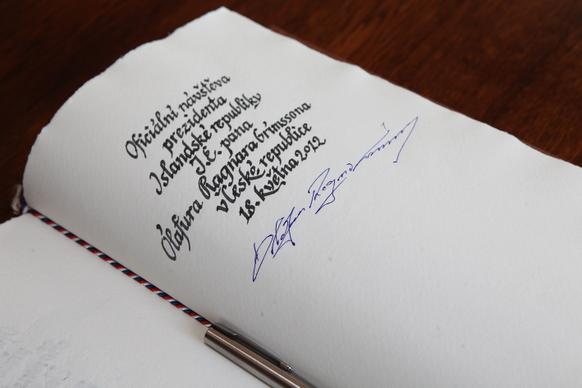 Oficiální návštěva
prezidenta
Islandské republiky
J.E. pana
Ólafura Ragnara Grímssona
v České republice
18. května 2012
Ólafur Ragnar Grímsson